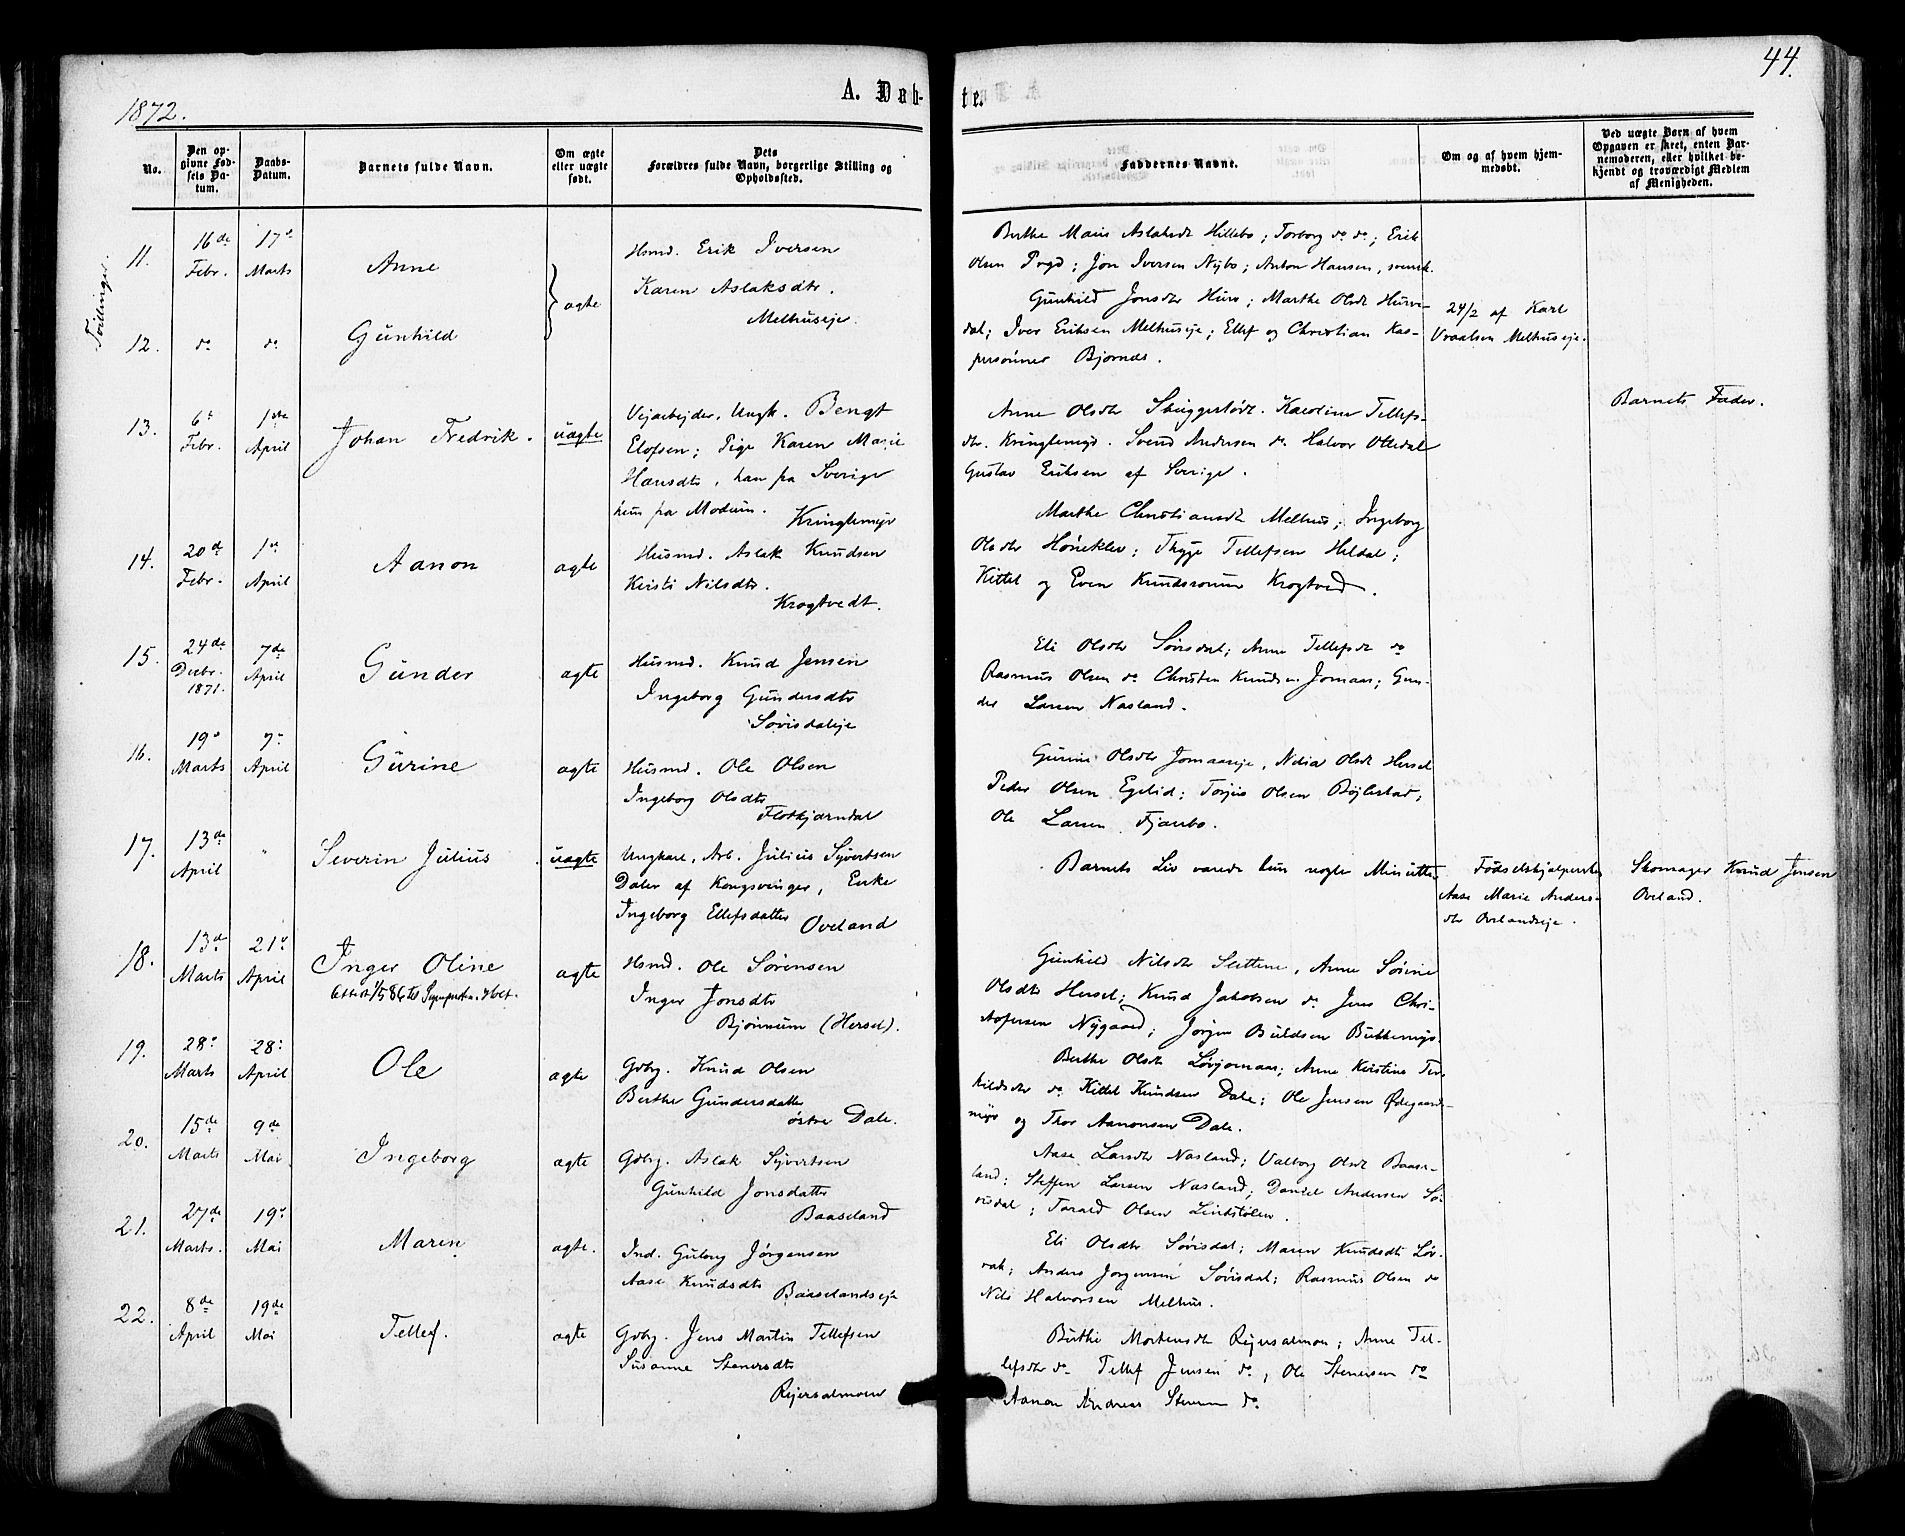 44.
1872.
A. Døb-
te.
No.
Den op-
givne Fød-
sels Da-
tum.
Daabs-
Datum.
Barnets fulde Navn.
Om ægte
eller uægte
født.
Dets
Forældres fulde Navn, borgerlige Stilling og
Opholdssted.
Faddernes Navne.
Om og af hvem hjem-
medøbt.
Ved uægte Børn af hvem
Opgaven er skeet, enten Bar-
nemoderen, eller hvilket be-
kjendt og troværdigt Medlem
af Menigheden.
Tvillinger.
11.
16de
Febr.
17de
Marts
Anne
ægte
Hsmd. Erik Iversen
Karen Aslaksdtr.
Melhuseje.
Berthe Marie Aslaksdt Hillebo; Torborg do do; Erik
Olsen; Jon Iversen Nybo; Anton Hansen, svensk.
12.
do
do
Gunhild
Gunhild Jonsdtr; Marthe Olsdt
dal; Iver Eriksen Melhuseje; Ellef og Christian Kas-
personner Bjornes.
24/2 af Karl
Vraalsen Melhuseje.
13.
6te
Febr.
1ste
April
Johan Fredrik.
uægte
Vejarbejder, Ungk. Bengt
Elofsen; Pige Karen Marie
Hansdtr, han fra Sverige
hun fra Modum.
Kringlemyr
Anne Olsdtr. Karoline Tellefs-
dtr. Kringlemyr. Svend Andersen do Halvor Ottedal
Gustav Eriksen af Sverige.
Barnets Fader.
14.
20de
Febr.
1ste
April
Aanon
ægte
Husmd. Aslak Knudsen
Kirsti Nilsdtr.
Krogtvedt.
Marthe Christiansdt Melhus; Ingeborg
Olsdtr; Thyge Tellefsen Heldal;
Kittel og Even Knudssønner Krogtved.
15.
24de
Decbr.
1871.
7de
April
Gunder
ægte
Husmd. Knud Jensen
Ingeborg Gundersdtr
Sørisdaleje
Eli Olsdtr Sørisdal; Anne Tellefsdt do
Rasmus Olsen do Christen Knudsen Jomaas; Gun-
der Larsen Næsland.
16.
19de
Marts
7de
April
Gurine
ægte
Husmd. Ole Olsen
Ingeborg Olsdtr
Flotkjærndal
Gurine Olsdtr Jomaaseje, Olsdt Hersel
Peder Olsen Egelid; Torjus Olsen Bøjlestad;
Ole Larsen.
17.
13de
April
"
Severin Julius
uægte
Ungkarl, Arb. Julius Syvertsen
Dalen af Kongsvinger, Enke
Ingeborg Ellefsdatter
Oveland
Barnets Liv varede kun nogle Minutter
Fødselshjælperske
Aase Marie Anders-
dtr Ovelandseje.
Skomager Knud Jensen
Oveland.
18.
13de
Marts
21de
April
Inger Oline
ægte
Hsmd. Ole Sørensen
Inger Jonsdtr
Bjørnum (Hersel).
Gunhild Nilsdtr Slettene, Anne Sørine
Olsdtr Hersel; Knud Jakobsen do Jens Chri-
stofersen Nygaard; Jørgen
19.
28de
Marts
28de
April
Ole
ægte
Gdbg. Knud Olsen
Berthe Gundersdatter
østre Dale.
Berthe Olsdt; Anne Kirstine Ter-
kildsdtr do Kittel Knudsen Dale; Ole Jensen Ødegaards-
myr og Thor Aanonsen Dale.
20.
15de
Marts
9de
Mai
Ingeborg
ægte
Gdbg. Aslak Syvertsen
Gunhild Jonsdatter
Baaseland
Aase Larsdtr Næsland; Valborg Olsdt Baase-
land; Steffen Larsen Næsland; Daniel Andersen Sø-
risdal; Tarald Olsen Lindstølen.
21.
27de
Marts.
19de
Mai
Maren
ægte.
Ind. Guleng Jørgensen
Aase Knudsdtr
Baaselandseje
Eli Olsdtr Sørisdal; Maren Knudsdt
Anders Jørgensen Sørisdal; Rasmus Olsen do
Nils Halvorsen Melhus.
22.
8de
April
19de
Mai
Tellef.
ægte
Gdbg. Jens Martin Tellefsen
Susanne Stenersdtr
Rejersølmoen
Berthe Mortensdt Rejersølmoen; Anne Tel-
lefsdtr do Tellef Jensen do, Ole Stenersen do
Aanon Andreas do